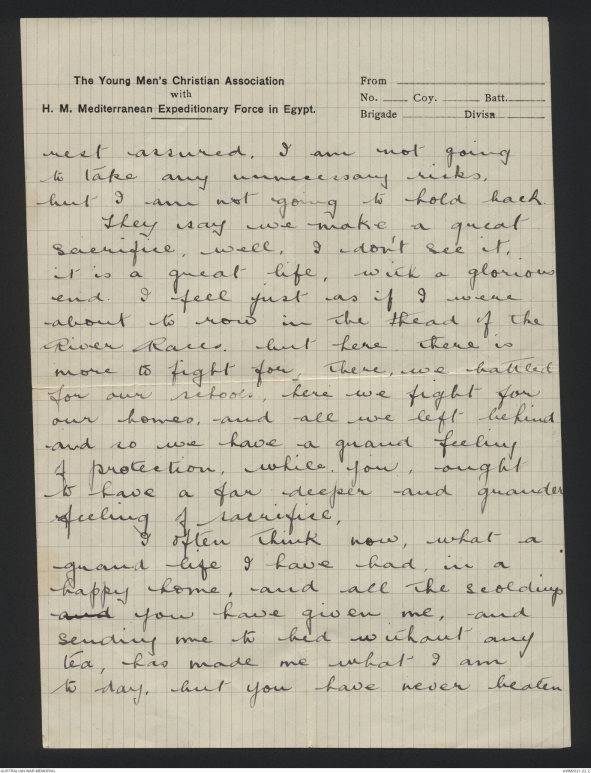 The Young Men's Christian Association
with
H. M. Mediterranean Expeditionary Force in Egypt.
From
No. Coy. Batt.
Brigade Divisn
rest assured. I am not going
to take any unnecessary risks,
but I am not going to hold back.
They say we make a great
sacrifice, well, I don't see it,
it is a great life, with a glorious
end. I feel just as if I were
about to row in the Head of the
River Races. but here there is
more to fight for, there, we battled
for our schools, here we fight for
our homes, and all we left behind
and so we have a grand feeling
of protection, while, you, ought
to have a far deeper and grander
feeling of sacrifice,
I often think now, what a
grand life I have had, in a
happy home, and all the scoldings
and you have given me, and
sending me to bed without any
tea, has made me what I am
to day, but you have never beaten
AUSTRALIAN WAR MEMORIAL